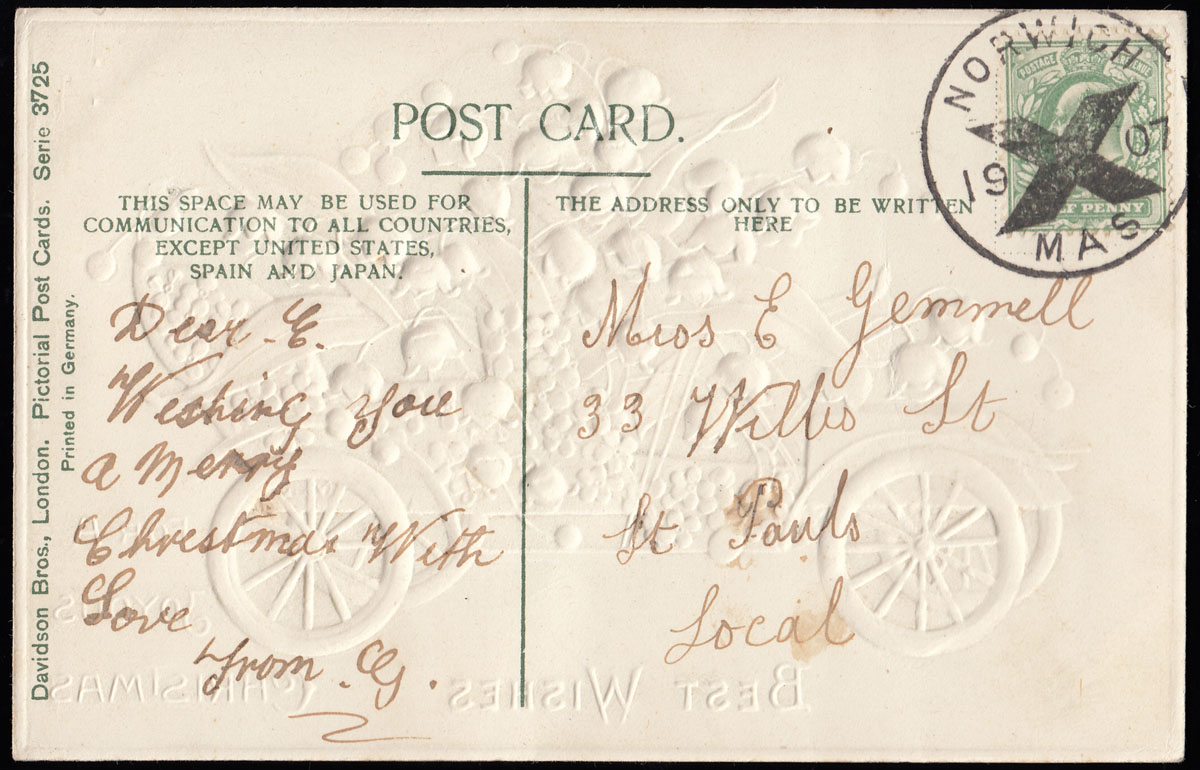 POST CARD.
NORWICH
19 07
MAS
POSTAGE
HALF PENNY
Davidson Bros., London. Pictorial Post Cards. Serie 3725
Printed in Germany.
THIS SPACE MAY BE USED FOR
COMMUNICATION TO ALL COUNTRIES,
EXCEPT UNITED STATES,
SPAIN AND JAPAN.
THE ADDRESS ONLY TO BE WRITTEN
HERE
Dear E.
Wishing you
a Merry
Christmas With
Love
from G.
Miss E Gemmell
33 Willis St
St Pauls
Local
BEST WISHES
CHRISTMAS